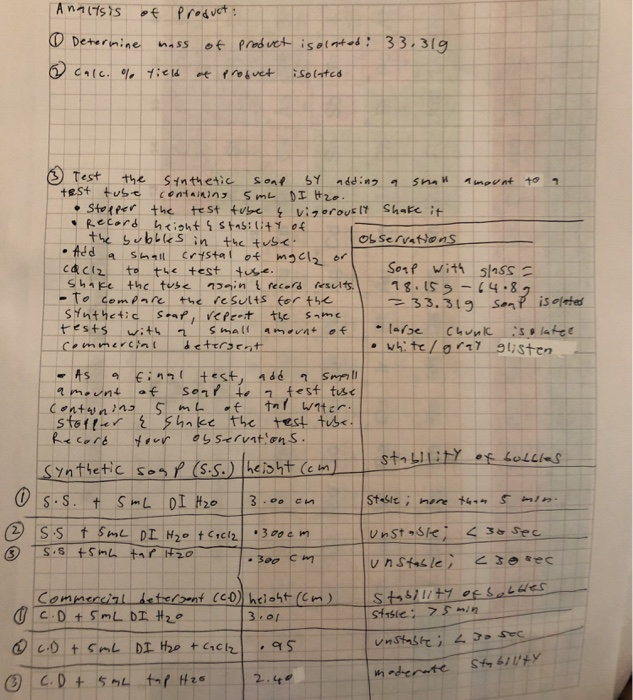 Analysis of Product:
① Determine mass of product isolated: 33.31g
② Calc. % yield of product isolated
③ Test the synthetic soap by adding a small amount to a
test tube containing 5 mL DI H2O.
• Stopper the test tube & vigorously shake it
• Record height & stability of
the bubbles in the tube.
• Add a small crystal of mgcl2 or
cacl2 to the test tube.
Shake the tube again & record results.
- To compare the results for the
synthetic soap, repeat the same
tests with a small amount of
commercial detergent
- As a final test, add a small
amount of soap to a test tube
containing 5 mL of tap water.
stopper & shake the test tube.
Record your observations.
Observations
Soap with glass =
98.15g - 64.8g
= 33.31g soap isolated
• large chunk isolated
• white/gray glisten
Synthetic soap (S.S.) height (cm) stability of bubbles
① S.S. + 5mL DI H2O 3.00 cm Stable; more than 5 min.
② S.S + 5mL DI H2O + Cacl2 .300cm Unstable; < 30 sec
③ S.S + 5mL tap H2O .300 cm Unstable; < 30 sec
Commercial detergent (CD) height (cm) Stability of bubbles
① C.D + 5mL DI H2O 3.01 Stable; > 5 min
② C.D + 5mL DI H2O + Cacl2 .95 unstable; < 30 sec
③ C.D + 5mL tap H2O 2.40 moderate stability